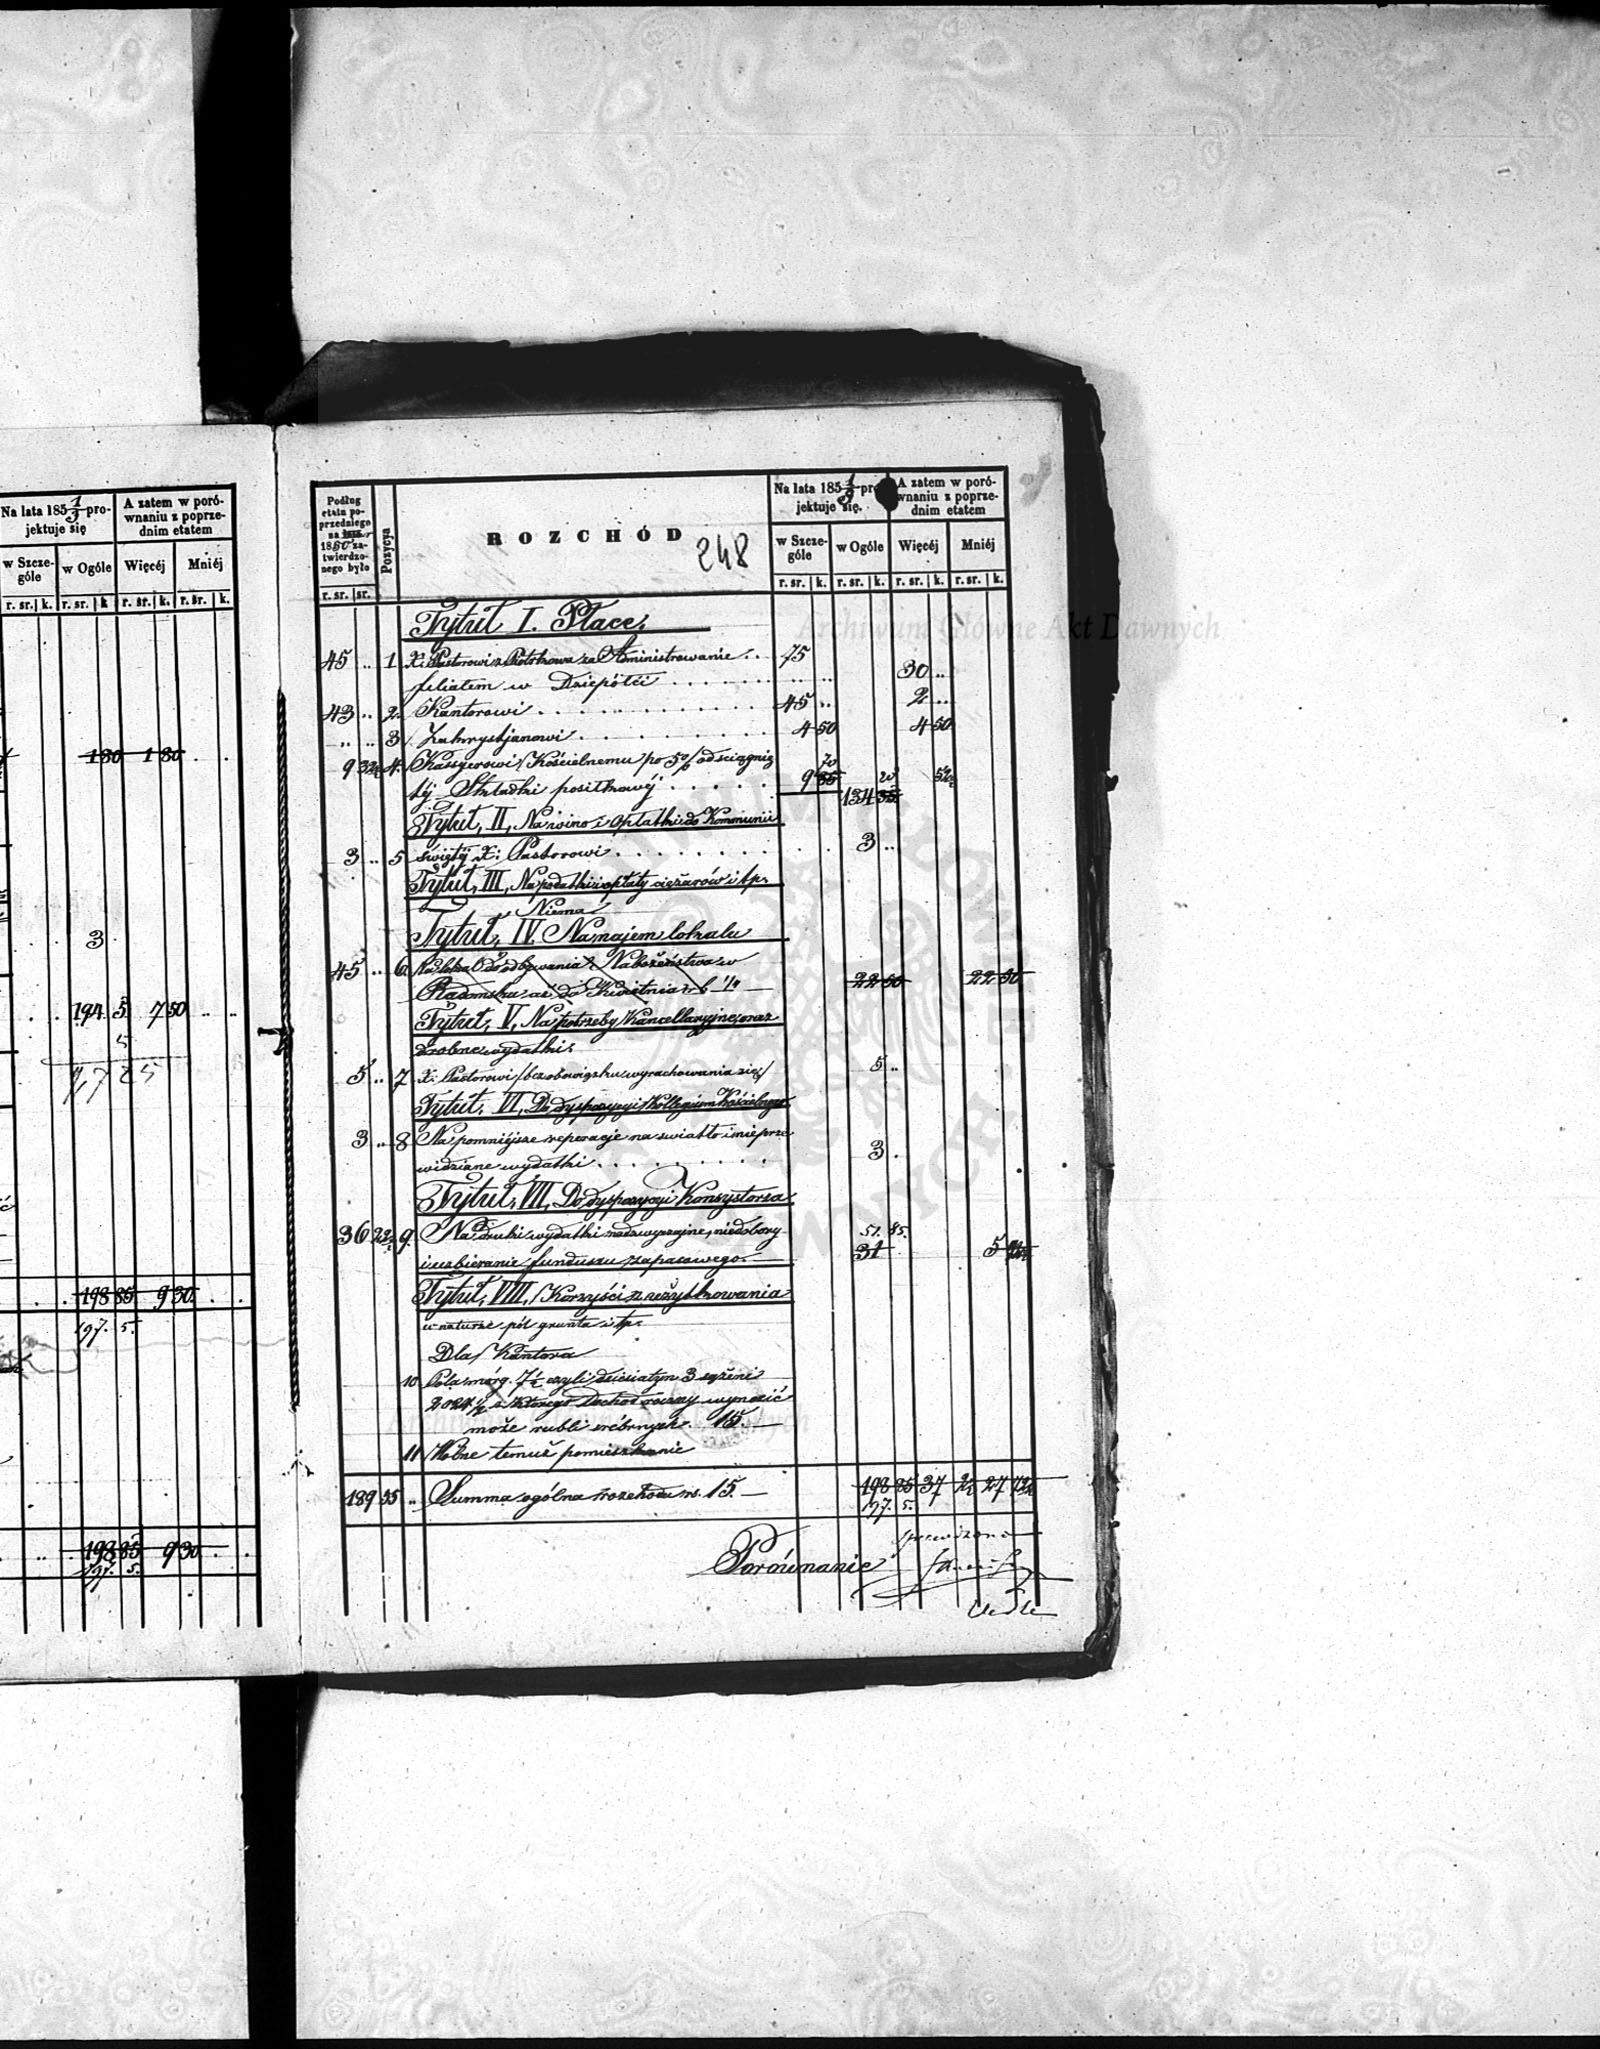 Na lata 185 1/3 pro-
jektuje się
A zatem w poró-
wnaniu z poprze-
dnim etatem
w Szcze-
góle
w Ogóle
Więcéj
Mniéj
r. sr. k. r. sr. k r. sr. k. r. sr. k.
180 1 80 . .
3
194 5 7 50 .. ..
5
198 85 9 30 . .
197. 5.
198 85 9 30 . .
197. 5.
Podług
etatu po-
przedniego
na
1850 za-
twierdzo-
nego było
Pozycya
ROZCHÓD
248
Na lata 185 1/3 pro-
jektuje się.
A zatem w poró-
wnaniu z poprze-
dnim etatem
w Szcze-
góle
w Ogóle
Więcéj
Mniéj
r. sr. sr.
r. sr. k. r. sr. k. r. sr. k. r. sr. k.
Tytuł I. Płace.
45 .. 1 X: Pastorowi z Piotrkowa za Administrowanie .. 75
filiałem w Dziepółci . . . . . . 30 ..
43 .. 2. Kantorowi . . . . . . . . 45 .. 2 ..
.. .. 3 Zakrystjanowi . . . . . . . 4 50 4 50
9 32½ 4. Kassyerowi / Kościelnemu po 5% od ściągnię
téj Składki posiłkowéj . . . . . 9 85 134 35 52½
70 20
Tytuł, II, Na wino i Opłatki do Kommunii
3 .. 5 świętéj X: Pastorowi . . . . . . . . 3 ..
Tytuł, III, Na podatki i opłaty ciężarów i tp.
Niema
Tytuł, IV. Na najem lokalu
45 .. 6. Na lokal do odbywania Nabożeństwa w
Radomsku aż do Kwietnia 22 50 22 50
Tytuł, V, Na potrzeby Kancellaryjne oraz
drobne wydatki.
5 .. 7 X: Pastorowi / bez obowiązku wyrachowania się / 5 ..
Tytuł, VI, Do dyspozycyi Kollegium Kościelnego
3 .. 8 Na pomniejsze reperacje na światło i nieprze
widziane wydatki . . . . . . . . 3 .
Tytuł, VII, Do dyspozycyi Konsystorza
36 22½ 9. Na druki wydatki nadzwyczajne, niedobory 51. 85.
i uzbieranie funduszu zapasowego. 31 5
Tytuł, VIII, / Korzyści z użytkowania
w naturze pól grunta i tp.
Dla Kantora
10 Pola mórg. 7½ czyli dziesiatyn 3 sążeni
2024½ z którego Dochód roczny wynosić
może rubli srébrnych. 15. —
11 Wolne temuż pomieszkanie
189 55 .. Summa ogólna rozchodu rs. 15. — 198 85 37 2½ 27 72½
197. 5.
Porównanie
Archiwum Główne Akt Dawnych